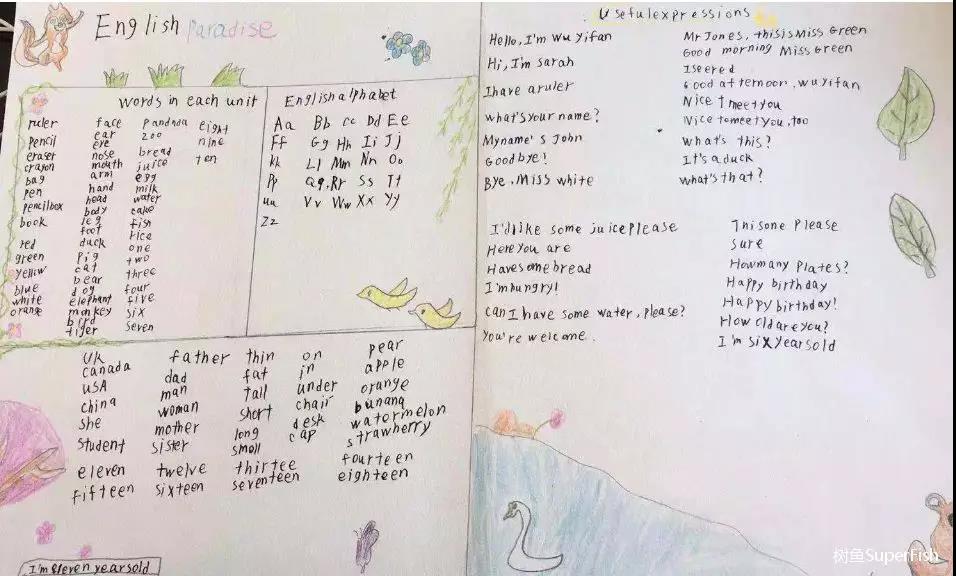 English Paradise
words in each unit
ruler
pencil
eraser
crayon
bag
pen
pencilbox
book
red
green
yellow
blue
white
orange
face
ear
eye
nose
mouth
arm
hand
head
body
leg
foot
duck
pig
cat
bear
dog
elephant
monkey
bird
tiger
pandnda
zoo
bread
juice
egg
milk
water
cake
fish
rice
one
two
three
four
five
six
seven
eight
nine
ten
English alphabet
Aa Bb Cc Dd Ee
Ff Gg Hh Ii Jj
Kk Ll Mm Nn Oo
Pp Qq Rr Ss Tt
Uu Vv Ww Xx Yy
Zz
UK
Canada
USA
china
she
student
father
dad
man
woman
mother
sister
thin
fat
tall
short
long
small
on
in
under
chair
desk
cap
pear
apple
orange
bunang
watermelon
strawherry
eleven twelve thirtee fourteen
fifteen sixteen seventeen eighteen
I'm eleven yearsold
Usefulexpressions
Hello, I'm Wu Yifan
Hi, I'm Sarah
Ihave aruler
what's your name?
Myname's John
Goodbye!
Bye, Miss white
Mr Jones, thisisMiss Green
Good morning Miss Green
Iseered
Good afternoon, wuyifan
Nice tmeetyou
Nicetomeetyou, too
What's this?
It's aduck
what's that?
I'dlike some juiceplease
Hereyou are
Havesomebread
I'mhungry!
can I have some water, please?
You're welcome.
Thisone Please
Sure
Howmany plates?
Happy birthday
Happy birthday!
How oldareyou?
I'm sixyearsold
树鱼SuperFish